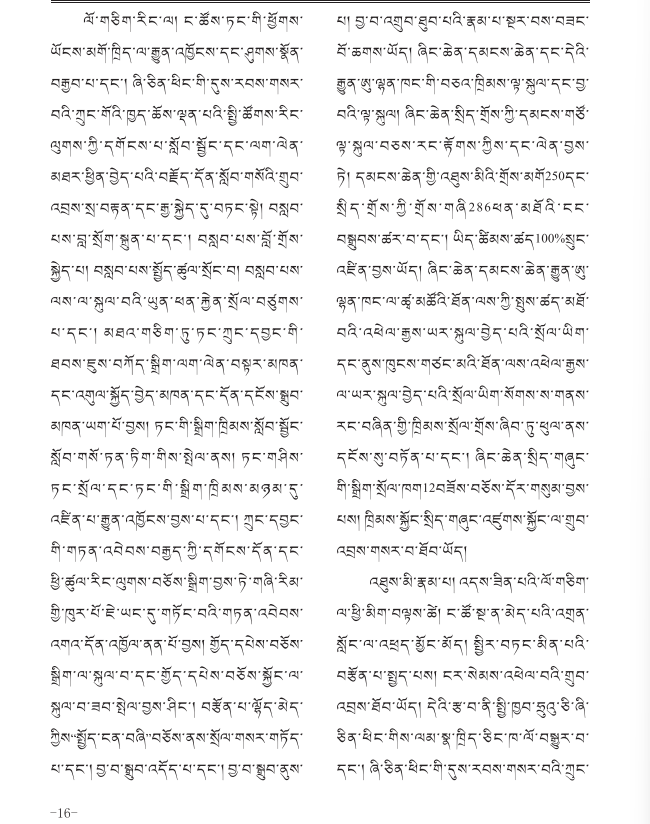 ལོ་གཅིག་རིང་ལ། ང་ཚོས་ཏང་གི་ཕྱོགས་
ཡོངས་མགོ་ཁྲིད་ལ་རྒྱུན་འཁྱོངས་དང་ཤུགས་སྣོན་
བརྒྱབ་པ་དང་། ཞི་ཅིན་ཕིང་གི་དུས་རབས་གསར་
བའི་ཀྲུང་གོའི་ཁྱད་ཆོས་ལྡན་པའི་སྤྱི་ཚོགས་རིང་
ལུགས་ཀྱི་དགོངས་པ་སློབ་སྦྱོང་དང་ལག་ལེན་
མཐར་ཕྱིན་བྱེད་པའི་བརྗོད་དོན་སློབ་གསོའི་གྲུབ་
འབྲས་སྲ་བརྟན་དང་རྒྱ་སྐྱེད་དུ་བཏང་སྟེ། བསླབ་
པས་བླ་སྲོག་སྐྲུན་པ་དང་། བསླབ་པས་བློ་གྲོས་
སྐྱེད་པ། བསླབ་པས་སྤྱོད་ཚུལ་སྲོང་བ། བསླབ་པས་
ལས་ལ་སྐུལ་བའི་ཡུན་ཕན་རྐྱེན་སྲོལ་བཙུགས་
པ་དང་། མཐའ་གཅིག་ཏུ་ཏང་ཀྲུང་དབྱང་གི་
ཐབས་ཇུས་བཀོད་སྒྲིག་ལག་ལེན་བསྟར་མཁན་
དང་འགུལ་སྐྱོད་བྱེད་མཁན་དང་དོན་དངོས་སྒྲུབ་
མཁན་ཡག་པོ་བྱས། ཏང་གི་སྒྲིག་ཁྲིམས་སློབ་སྦྱོང་
སློབ་གསོ་ཏན་ཏིག་གིས་སྤེལ་ནས། ཏང་གཤིས་
ཏང་སྲོལ་དང་ཏང་གི་སྒྲིག་ཁྲིམས་མཉམ་དུ་
འཛིན་པ་རྒྱུན་འཁྱོངས་བྱས་པ་དང་། ཀྲུང་དབྱང་
གི་གཏན་འབེབས་བརྒྱད་ཀྱི་དགོངས་དོན་དང་
ཕྱི་ཚུལ་རིང་ལུགས་བཅོས་སྒྲིག་བྱས་ཏེ་གཞི་རིམ་
གྱི་ཁུར་པོ་ཇེ་ཡང་དུ་གཏོང་བའི་གཏན་འབེབས་
འགའ་དོན་འཁྱོལ་ནན་པོ་བྱས། གྱོད་དཔེས་བཅོས་
སྒྲིག་ལ་སྐུལ་བ་དང་གྱོད་དཔེས་བཅོས་སྐྱོང་ལ་
སྐུལ་བ་ཟབ་སྤེལ་བྱས་ཤིང་། བརྩོན་པ་ལྷོད་མེད་
ཀྱིས“སྤྱོད་ངན་བཞི”བཅོས་ནས་སྲོལ་གསར་གཏོད་
པ་དང་། བྱ་བ་སྒྲུབ་འདོད་པ་དང་། བྱ་བ་སྒྲུབ་ནུས་
པ། བྱ་བ་འགྲུབ་ཐུབ་པའི་རྣམ་པ་སྔར་བས་བཟང་
པོ་ཆགས་ཡོད། ཞིང་ཆེན་དམངས་ཆེན་དང་དེའི་
རྒྱུན་ཨུ་ལྷན་ཁང་གི་བཅའ་ཁྲིམས་ལྟ་སྐུལ་དང་བྱ་
བའི་ལྟ་སྐུལ། ཞིང་ཆེན་སྲིད་གྲོས་ཀྱི་དམངས་གཙོ་
ལྟ་སྐུལ་བཅས་རང་རྟོགས་ཀྱིས་དང་ལེན་བྱས་
ཏེ། དམངས་ཆེན་གྱི་འཐུས་མིའི་གྲོས་མགོ250དང་
སྲིད་གྲོས་ཀྱི་གྲོས་གཞི286ཕན་མཐོའི་ངང་
བསྒྲུབས་ཚར་བ་དང་། ཡིད་ཚིམས་ཚད100%སྲུང་
འཛིན་བྱས་ཡོད། ཞིང་ཆེན་དམངས་ཆེན་རྒྱུན་ཨུ་
ལྷན་ཁང་ལ་ཚྭ་མཚོའི་ཐོན་ལས་ཀྱི་སྤུས་ཚད་མཐོ་
བའི་འཕེལ་རྒྱས་ཡར་སྐུལ་བྱེད་པའི་སྲོལ་ཡིག་
དང་ནུས་ཁུངས་གཙང་མའི་ཐོན་ལས་འཕེལ་རྒྱས་
ལ་ཡར་སྐུལ་བྱེད་པའི་སྲོལ་ཡིག་སོགས་ས་གནས་
རང་བཞིན་གྱི་ཁྲིམས་སྲོལ་གྲོས་ཞིབ་ཏུ་ཕུལ་ནས་
དངོས་སུ་བཏོན་པ་དང་། ཞིང་ཆེན་སྲིད་གཞུང་
གི་སྒྲིག་སྲོལ་ཁག12བཟོས་བཅོས་དོར་གསུམ་བྱས་
པས། ཁྲིམས་སྐྱོང་སྲིད་གཞུང་འཛུགས་སྐྱོང་ལ་གྲུབ་
འབྲས་གསར་བ་ཐོབ་ཡོད།
འཐུས་མི་རྣམ་པ། འདས་ཟིན་པའི་ལོ་གཅིག་
ལ་ཕྱི་མིག་བལྟས་ཚེ། ང་ཚོ་སྔ་ན་མེད་པའི་འགྲན་
སློང་ལ་འཕྲད་མྱོང་མོད། སྤྱིར་བཏང་མིན་པའི་
བརྩོན་པ་སྤྱད་པས། ངར་སེམས་འཕེལ་བའི་གྲུབ་
འབྲས་ཐོབ་ཡོད། དེའི་རྩ་བ་ནི་སྤྱི་ཁྱབ་ཧྲུའུ་ཅི་ཞི་
ཅིན་ཕིང་གིས་ལམ་སྣ་ཁྲིད་ཅིང་ཁ་ལོ་བསྒྱུར་བ་
དང་། ཞི་ཅིན་ཕིང་གི་དུས་རབས་གསར་བའི་ཀྲུང་
-16-